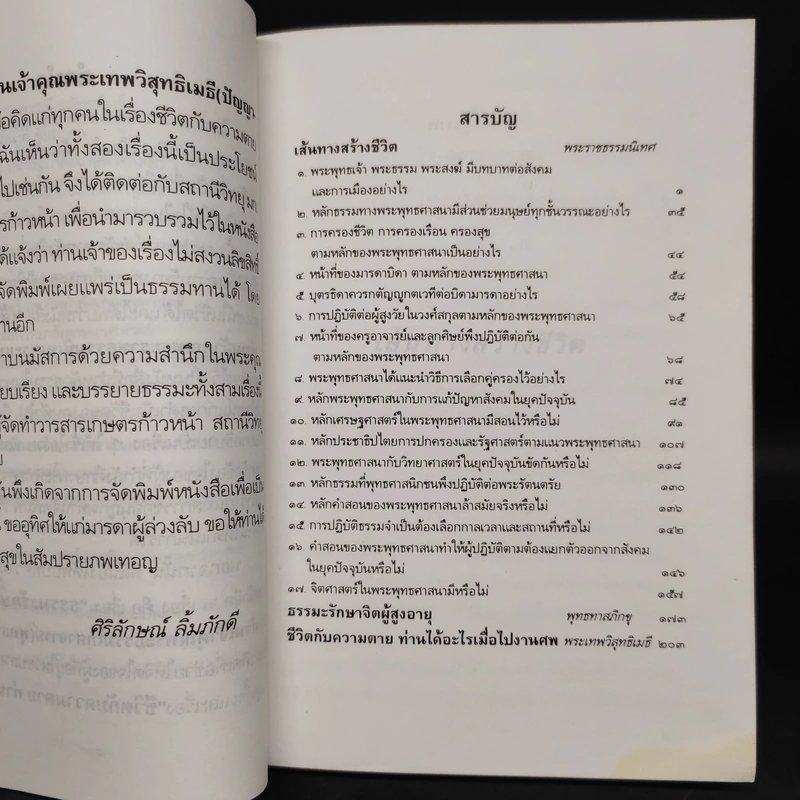 นเจ้าคุณพระเทพวิสุทธิเมธี(ปัญญา
อคิดแก่ทุกคนในเรื่องชีวิตกับความตาย
ฉันเห็นว่าทั้งสองเรื่องนี้เป็นประโยชน์
ไปเช่นกัน จึงได้ติดต่อกับสถานีวิทยุ
รก้าวหน้า เพื่อนำมารวบรวมไว้ในหนังสือ
ด้แจ้งว่า ท่านเจ้าของเรื่องไม่สงวนลิขสิทธิ์
จัดพิมพ์เผยแพร่เป็นธรรมทานได้ โดย
านอีก
าบนมัสการด้วยความสำนึกในพระคุณ
ียบเรียง และบรรยายธรรมะทั้งสามเรื่องนี้
ผู้จัดทำวารสารเกษตรก้าวหน้า สถานีวิทยุ
นพึงเกิดจากการจัดพิมพ์หนังสือเพื่อเป็น
ขออุทิศให้แก่มารดาผู้ล่วงลับ ขอให้ท่านได้
สุขในสัมปรายภพเทอญ
ศิริลักษณ์ ลิ้มภักดี
สารบัญ
เส้นทางสร้างชีวิต พระราชธรรมนิเทศ
๑. พระพุทธเจ้า พระธรรม พระสงฆ์ มีบทบาทต่อสังคม
และการเมืองอย่างไร ๑
๒. หลักธรรมทางพระพุทธศาสนามีส่วนช่วยมนุษย์ทุกชั้นวรรณะอย่างไร ๓๕
๓. การครองชีวิต การครองเรือน ครองสุข
ตามหลักของพระพุทธศาสนาเป็นอย่างไร ๔๔
๔. หน้าที่ของมารดาบิดา ตามหลักของพระพุทธศาสนา ๕๔
๕. บุตรธิดาควรกตัญญูกตเวทีต่อบิดามารดาอย่างไร ๕๘
๖. การปฏิบัติต่อผู้สูงวัยในวงศ์สกุลตามหลักของพระพุทธศาสนา ๖๕
๗. หน้าที่ของครูอาจารย์และลูกศิษย์พึงปฏิบัติต่อกัน
ตามหลักของพระพุทธศาสนา ๖๘
๘. พระพุทธศาสนาได้แนะนำวิธีการเลือกคู่ครองไว้อย่างไร ๗๔
๙. หลักพระพุทธศาสนากับการแก้ปัญหาสังคมในยุคปัจจุบัน ๘๕
๑๐. หลักเศรษฐศาสตร์ในพระพุทธศาสนามีสอนไว้หรือไม่ ๙๑
๑๑. หลักประชาธิปไตยการปกครองและรัฐศาสตร์ตามแนวพระพุทธศาสนา ๑๐๗
๑๒. พระพุทธศาสนากับวิทยาศาสตร์ในยุคปัจจุบันขัดกันหรือไม่ ๑๑๘
๑๓. หลักธรรมที่พุทธศาสนิกชนพึงปฏิบัติต่อพระรัตนตรัย ๑๓๐
๑๔. หลักคำสอนของพระพุทธศาสนาล้าสมัยจริงหรือไม่ ๑๓๖
๑๕. การปฏิบัติธรรมจำเป็นต้องเลือกกาลเวลาและสถานที่หรือไม่ ๑๔๒
๑๖. คำสอนของพระพุทธศาสนาทำให้ผู้ปฏิบัติตามต้องแยกตัวออกจากสังคม
ในยุคปัจจุบันหรือไม่ ๑๔๖
๑๗. จิตศาสตร์ในพระพุทธศาสนามีหรือไม่ ๑๕๗
ธรรมะรักษาจิตผู้สูงอายุ พุทธทาสภิกขุ ๑๗๓
ชีวิตกับความตาย ท่านได้อะไรเมื่อไปงานศพ พระเทพวิสุทธิเมธี ๒๐๓